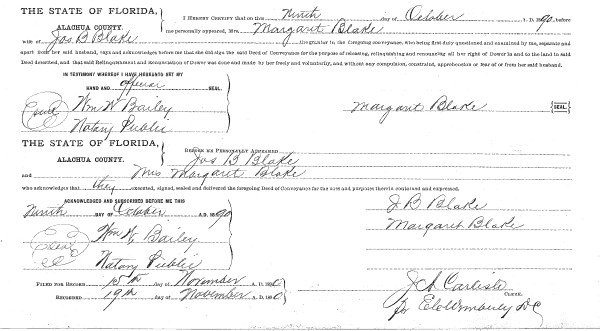 THE STATE OF FLORIDA,
ALACHUA COUNTY.
I HEREBY CERTIFY that on this Ninth day of October A. D. 1890, before
me personally appeared, Mrs. Margaret Blake
wife of Jos B Blake the grantor in the foregoing conveyance, who being first duly questioned and examined by me, separate and
apart from her said husband, says and acknowledges before me that she did sign the said Deed of Conveyance for the purpose of releasing, relinquishing and renouncing all her right of Dower in and to the land in said
Deed described, and that said Relinquishment and Renunciation of Dower was done and made by her freely and voluntarily, and without any compulsion, constraint, apprehension or fear of or from her said husband.
IN TESTIMONY WHEREOF I HAVE HEREUNTO SET MY
HAND AND official SEAL.
Seal Wm W Bailey
Notary Public
Margaret Blake {SEAL}
THE STATE OF FLORIDA,
ALACHUA COUNTY.
BEFORE ME PERSONALLY APPEARED
Jos B Blake
and Mrs Margaret Blake
who acknowledges that they executed, signed, sealed and delivered the foregoing Deed of Conveyance for the uses and purposes therein contained and expressed.
ACKNOWLEDGED AND SUBSCRIBED BEFORE ME THIS
Ninth DAY OF October A.D. 1890
J B Blake
Margaret Blake
Seal Wm W Bailey
Notary Public
FILED FOR RECORD 15th day of November A. D. 1890
RECORDED 19th day of November A. D. 1890
J A Carlisle
CLERK.
D C